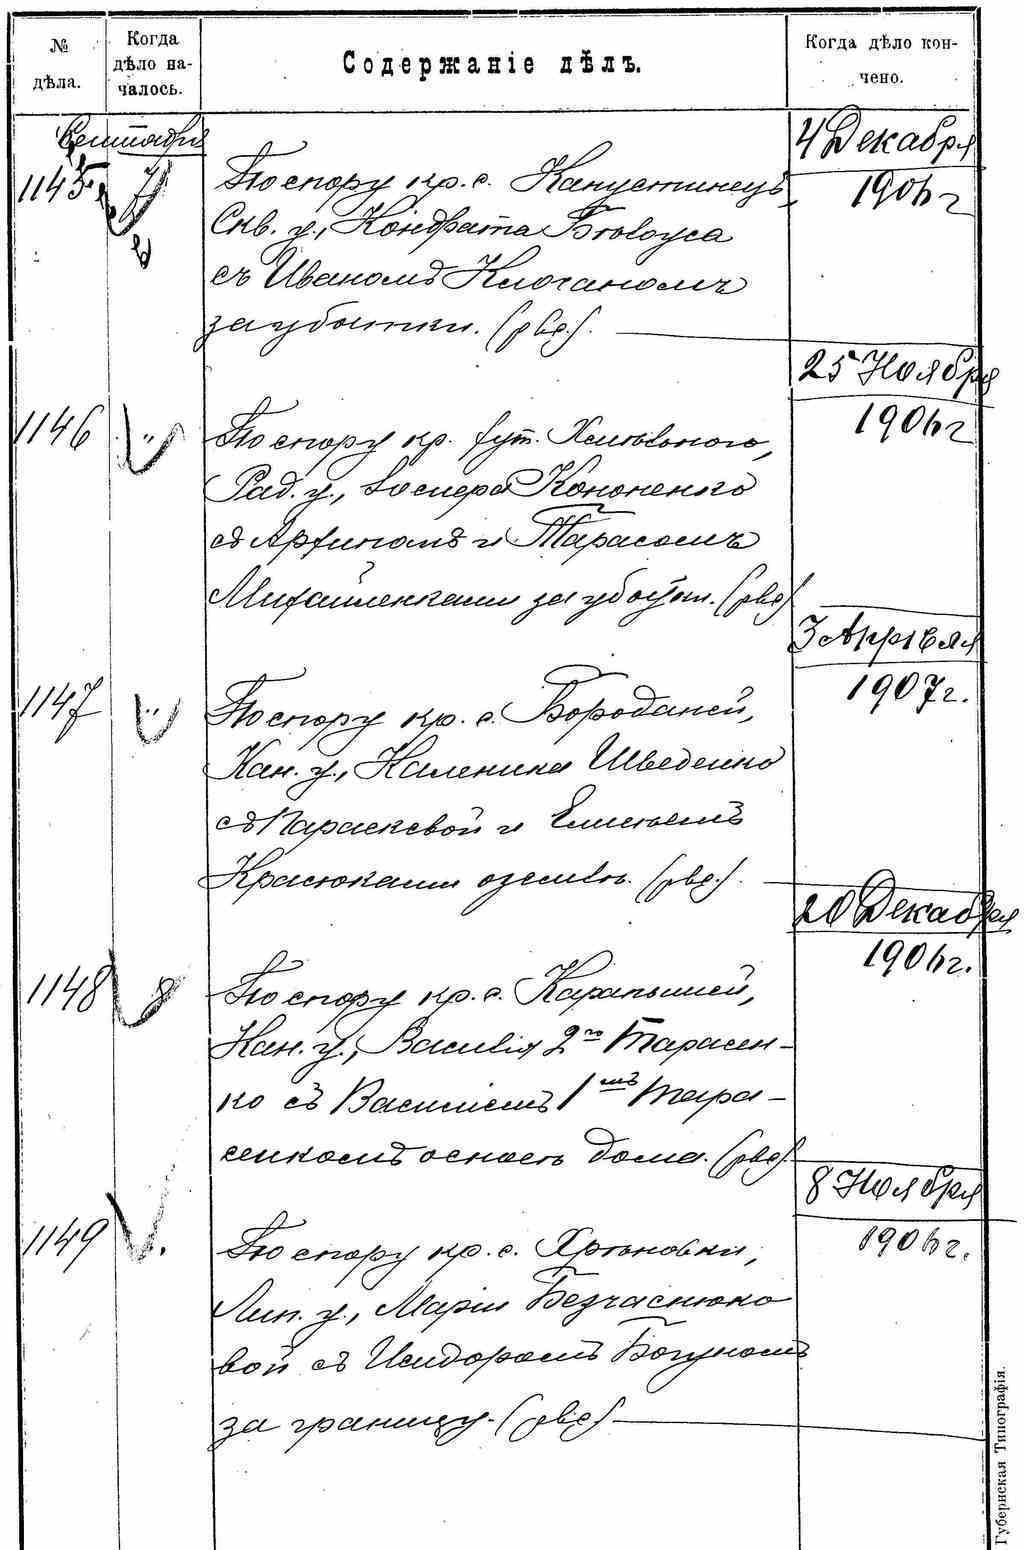 № дѣла.
Когда дѣло началось.
Содержаніе дѣлъ.
Когда дѣло кончено.
Сентября
1145
7
По спору кр. с. Капустинецъ,
Скв. у., Кондрата Бѣлоуса
съ Иваномъ Клоча­номъ
за убытки.
4 Декабря
1906 г
1146
"
По спору кр. хут. Хмѣльного,
Рад. у., Кононенко
съ Архипомъ и Тарасомъ
Михайленками за убытки.
25 Ноября
1906 г
1147
"
По спору кр. с. Бороданей,
Кан. у., Каленика Шведенко
съ Параскевой и Елисѣемъ
Красюками о землѣ.
3 Апрѣля
1907 г.
1148
8
По спору кр. с. Карапышей,
Кан. у., Василія 2го Тарасен-
ко съ Василіемъ 1мъ Тара-
сенкомъ о сносѣ дома.
20 Декабря
1906 г.
1149
По спору кр. с. Хрѣновки,
Лип. у., Маріи Безчаснюко
вой съ Исидоромъ Богуномъ
за границу.
8 Ноября
1906 г.
Губернская Типографія.